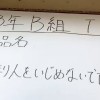 3年B組 T
品名
り人をいじめないで